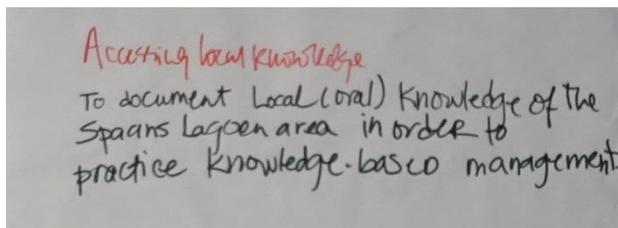 Accessing local knowledge
To document Local (oral) Knowledge of the
Spaans Lagoen area in order to
practice knowledge-based management